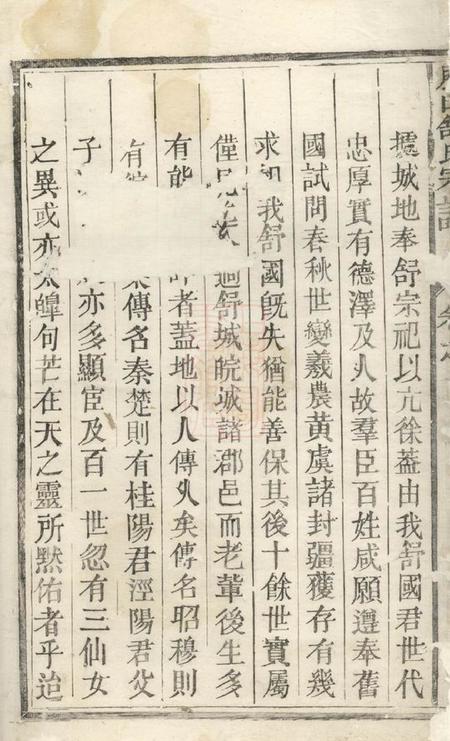 據城地奉舒宗祀以亢徐蓋由我舒國君世代
忠厚實有德澤及人故羣臣百姓咸願遵奉舊
國試問春秋世變羲農黃虞諸封疆獲存有幾
求如我舒國旣失猶能善保其後十餘世實屬
僅見 迴舒城皖城諸郡邑而老輩後生多
有能 者蓋地以人傳久矣傳名昭穆則
有 傳名秦楚則有桂陽君涇陽君父
子 亦多顯宦及百一世忽有三仙女
之異或亦太皥句芒在天之靈所默佑者乎迨
舒氏宗譜